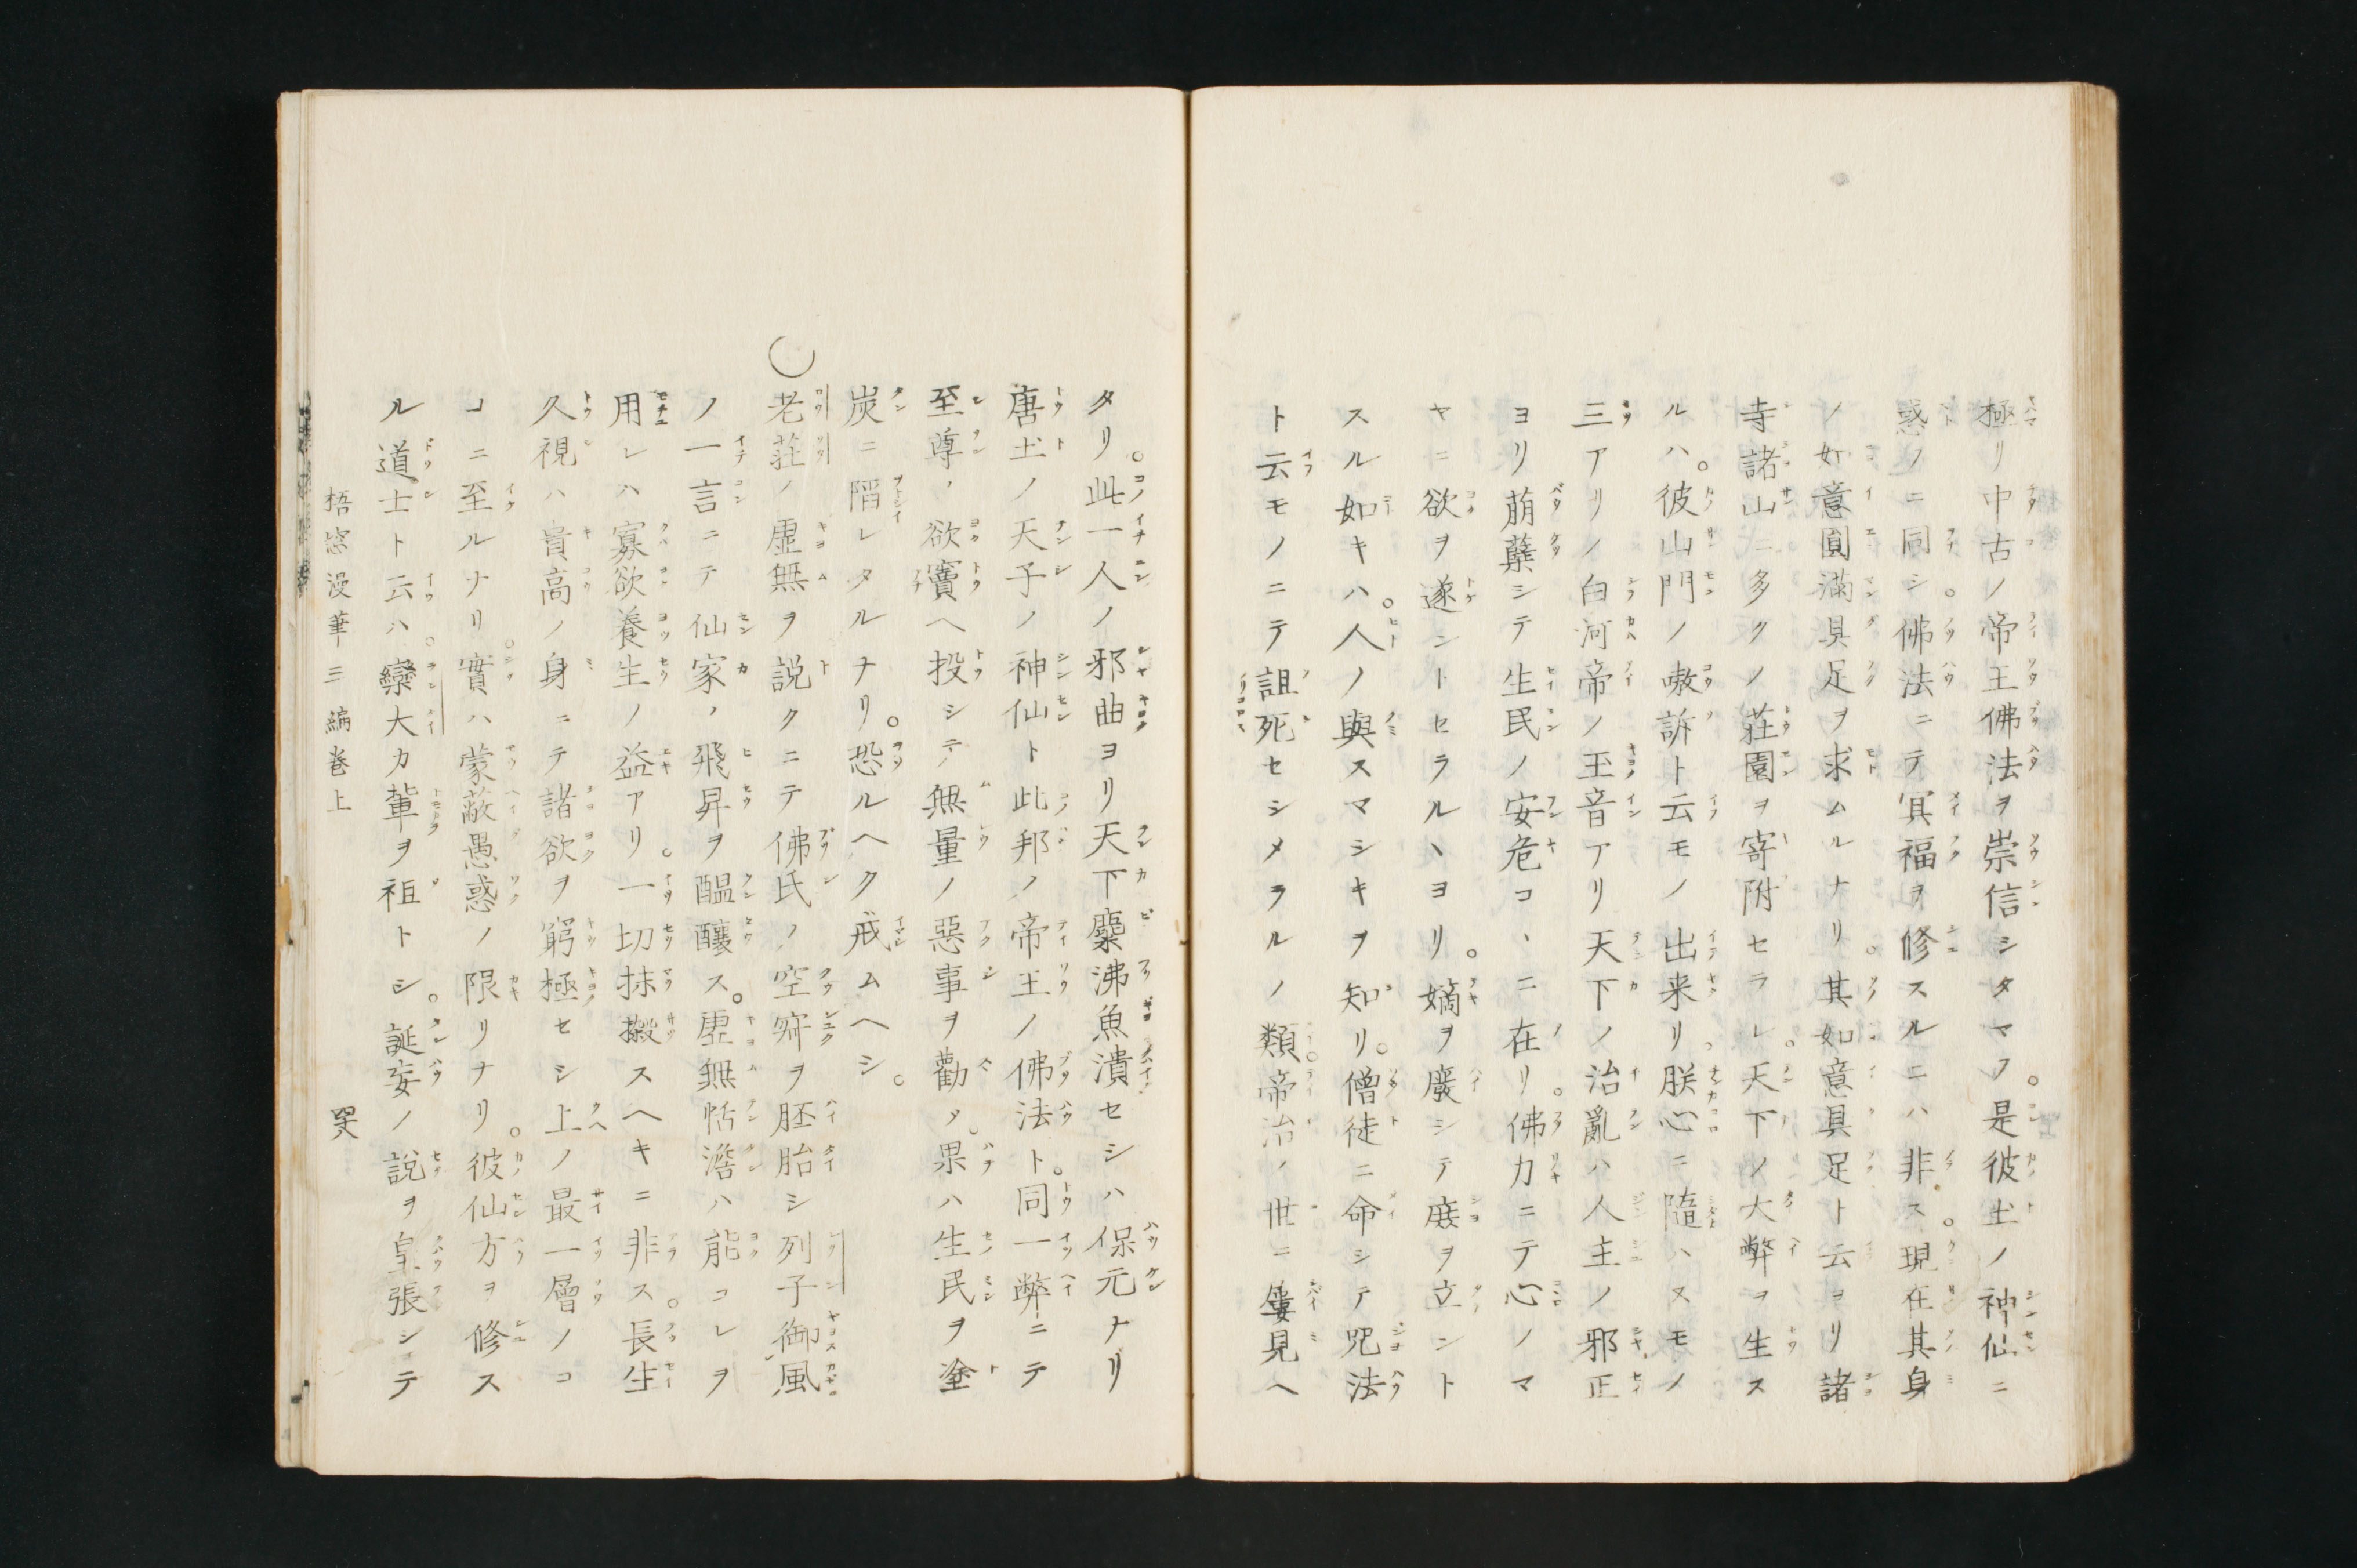 極リ中古ノ帝王佛法ヲ崇信シタマフ。是彼土ノ神仙ニ
惑ノニ同シ。佛法ニテ冥福ヲ修スルニハ非ス。現在其身
ノ如意圓滿具足ヲ求ムルナリ。其如意具足ト云ヨリ諸
寺諸山ニ多クノ莊園ヲ寄附セラレ。天下ノ大弊ヲ生ス
ルハ。彼山門ノ嗷訴ト云モノ出来リ朕心ニ隨ハヌモノ
三アリノ白河帝ノ玉音アリ天下ノ治亂ハ人主ノ邪正
ヨリ萠蘖シテ生民ノ安危コヽニ在リ。佛力ニテ心ノマ
ヤニ欲ヲ遂ントセラルヽヨリ。嫡ヲ廢シテ庶ヲ立ント
スル如キハ。人ノ與スマシキヲ知リ。僧徒ニ命シテ咒法
ト云モノニテ詛死セシメラルノ類。帝治ノ世ニ屢見ヘ
タリ。此一人ノ邪曲ヨリ天下麋沸魚潰セシハ保元ナリ
唐土ノ天子ノ神仙ト此邦ノ帝王ノ佛法ト。同一弊ニテ
至尊ノ欲竇ヘ投シテ無量ノ惡事ヲ勸メ。果ハ生民ヲ塗
炭ニ陷レタルナリ。恐ルヘク戒ムヘシ。
老莊ノ虛無ヲ説クニテ佛氏ノ空寂ヲ胚胎シ列子御風
ノ一言ニテ仙家ノ飛昇ヲ醞釀ス。虛無恬澹ハ能コレヲ
用レハ寡欲養生ノ益アリ。一切抹摋スヘキニ非ス。長生
久視ハ貴高ノ身ニテ諸欲ヲ窮極セシ上ノ最一層ノコ
コニ至ルナリ。實ハ蒙蔽愚惑ノ限リナリ。彼仙方ヲ修ス
ル道士ト云ハ。欒大カ輩ヲ祖トシ。誕妄ノ説ヲ皇張シテ
梧窓漫筆三編巻上